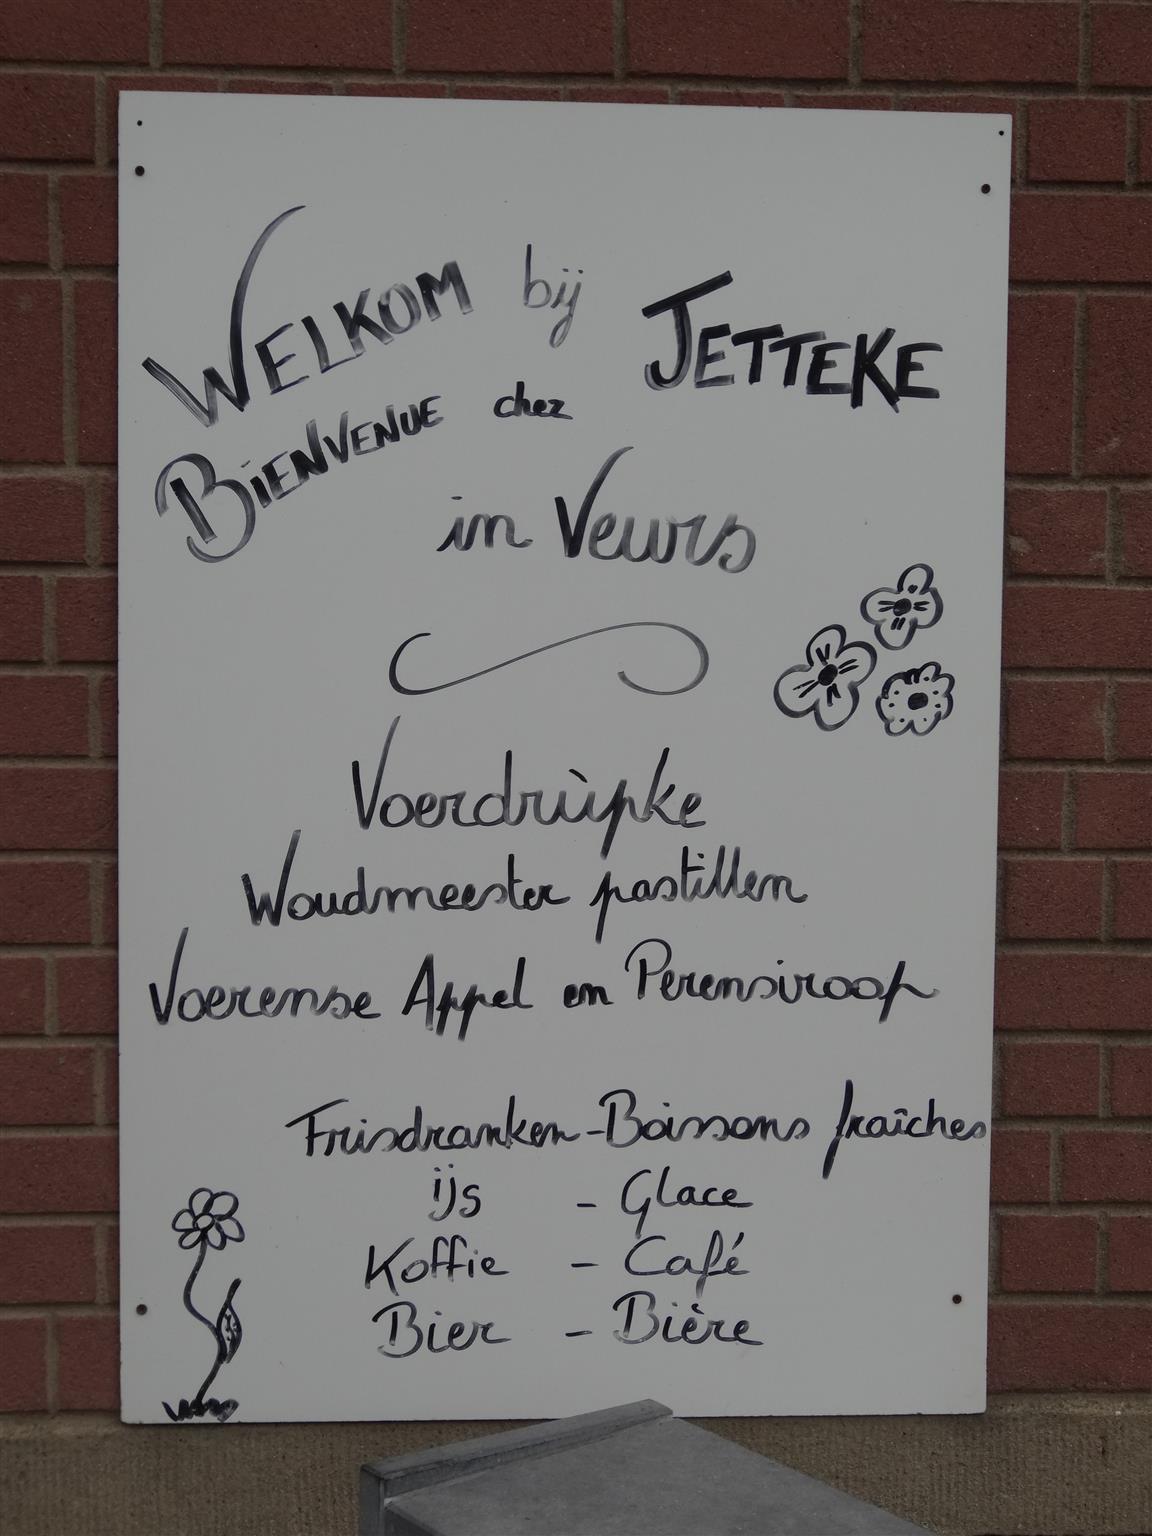 WELKOM bij JETTEKE
BIENVENUE chez
in Veurs
Voerdrùpke
Woudmeester pastillen
Voerense Appel en Perensiroop
Frisdranken - Boissons fraîches
ijs - Glace
Koffie - Café
Bier - Bière